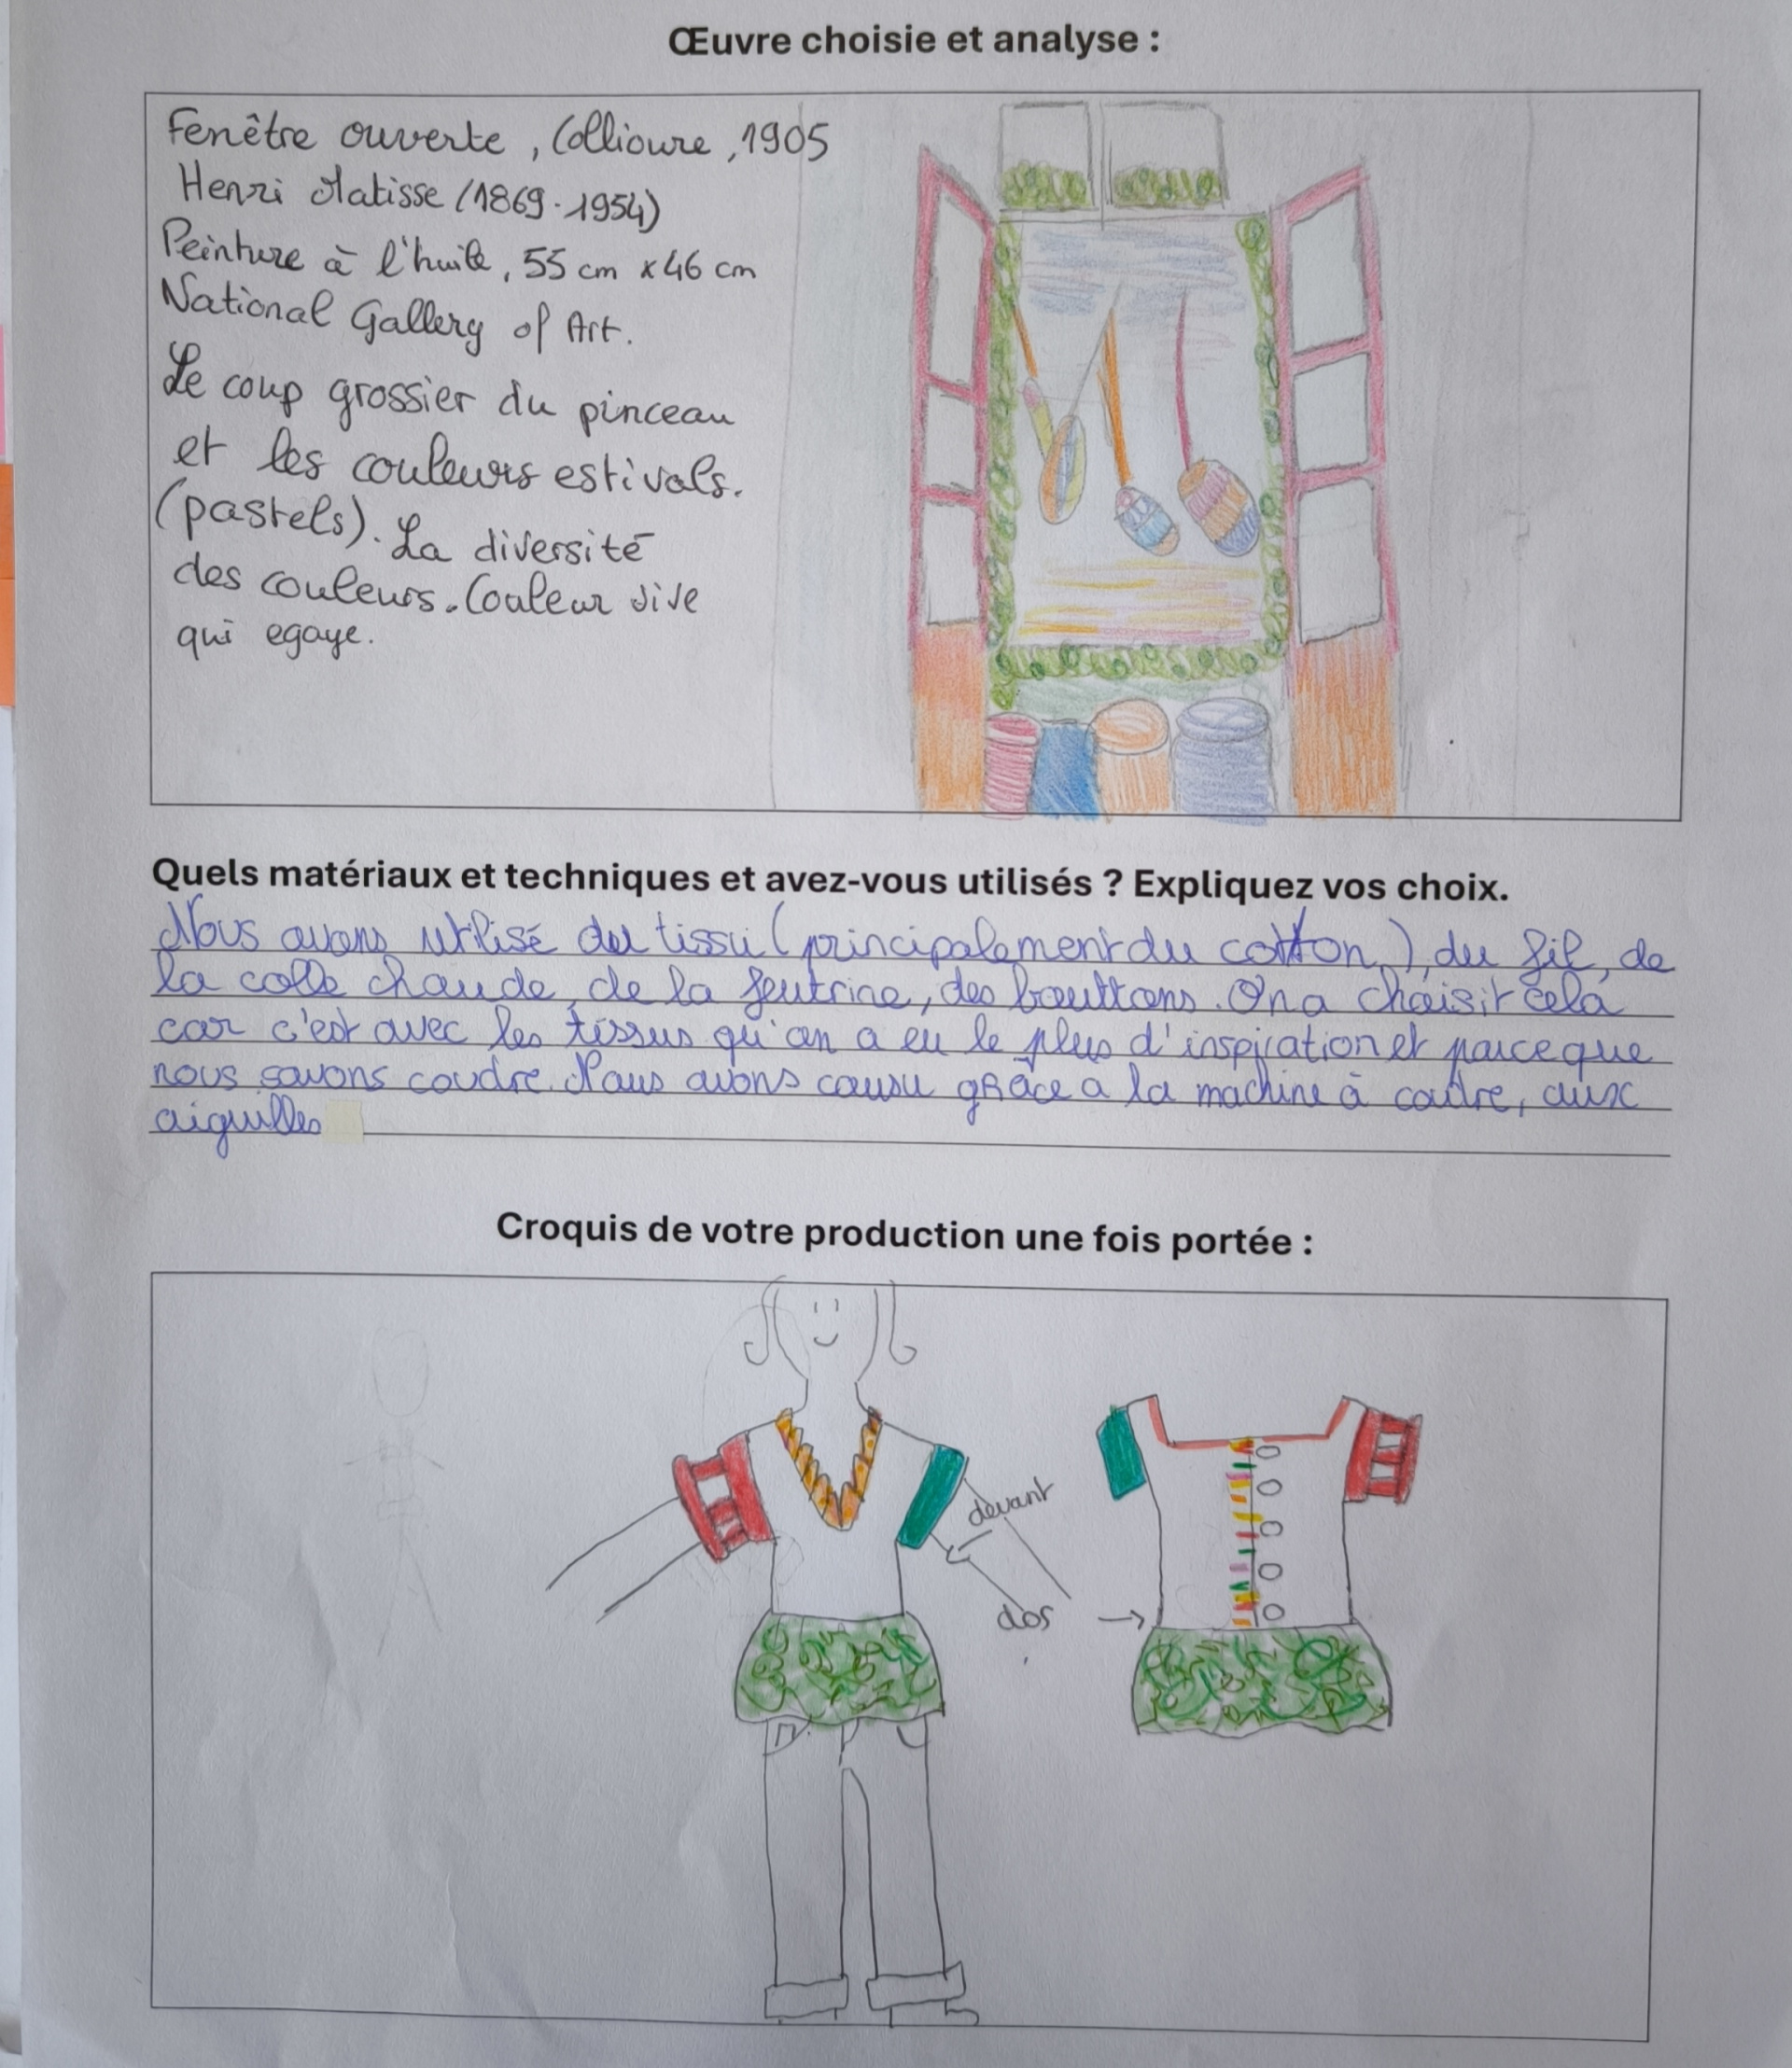 Œuvre choisie et analyse :
Fenêtre ouverte, Collioure, 1905
Henri Matisse (1869-1954)
Peinture à l'huile, 55 cm x 46 cm
National Gallery of Art.
Le coup grossier du pinceau
et les couleurs estivals.
(pastels). La diversité
des couleurs. Couleur vive
qui egaye.
Quels matériaux et techniques et avez-vous utilisés ? Expliquez vos choix.
Nous avons utilisé du tissu (principalement du cotton), du fil, de
la colle chaude, de la feutrine, des bouttons. On a choisit cela
car c'est avec les tissus qu'on a eu le plus d'inspiration et parce que
nous savons coudre. Nous avons cousu grâce a la machine à coudre, aux
aiguilles
Croquis de votre production une fois portée :
devant
dos